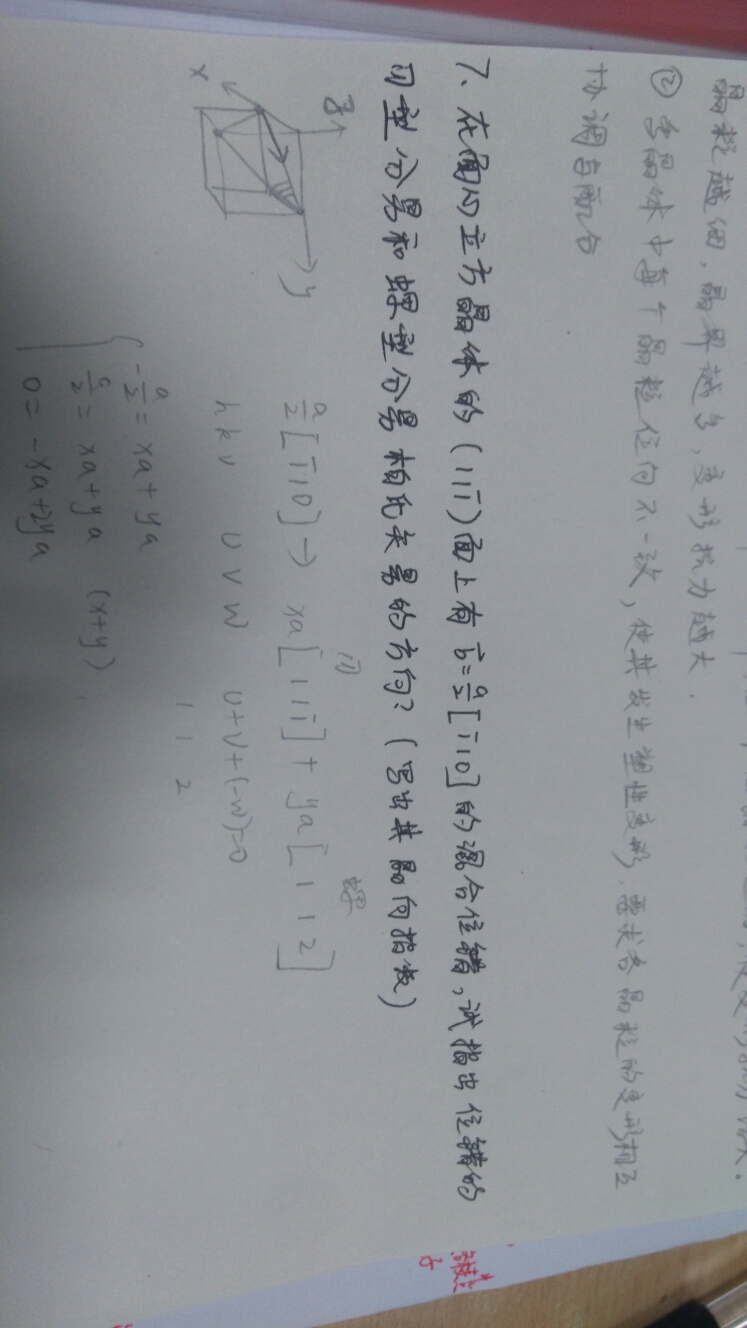 晶粒越细，晶界越多，变形抗力越大．
② 多晶体中每个晶粒位向不一致，使其发生塑性变形，需求各晶粒的变形相互
协调与配合
7、在面心立方晶体的(111̄)面上有b⃗=a/2[1̄10]的混合位错，试指出位错的
刃型分量和螺型分量柏氏矢量的方向？(写出其晶向指数)
z
x
y
刃 螺
a/2[1̄10]→ xa[111̄]+ya[112]
h k v u v w u+v+(-w)=0
1 1 2
-a/2=xa+ya
a/2=xa+ya (x+y)
0=-xa+2ya